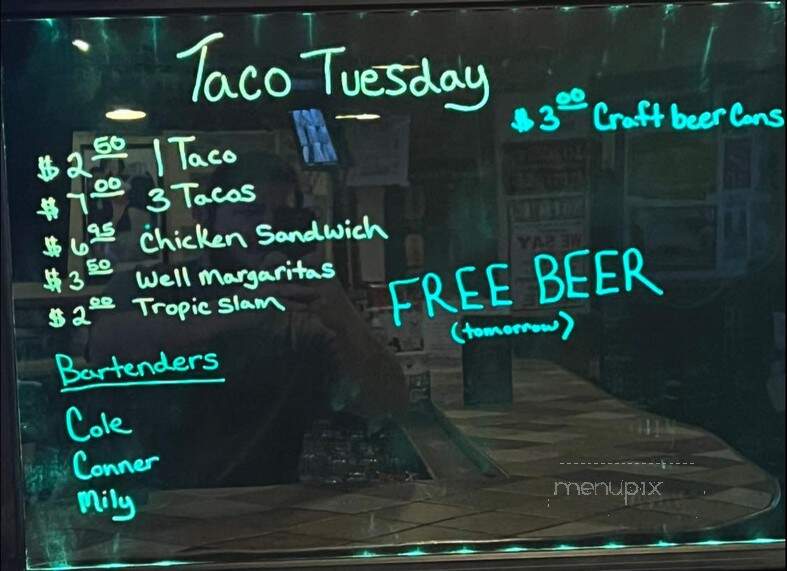 Taco Tuesday
$3.00 Craft beer Cans
$2.50 1 Taco
$7.00 3 Tacos
$6.95 Chicken Sandwich
$3.50 Well Margaritas
$2.00 Tropic Slam
FREE BEER
(tomorrow)
Bartenders
Cole
Conner
Mily
menupix